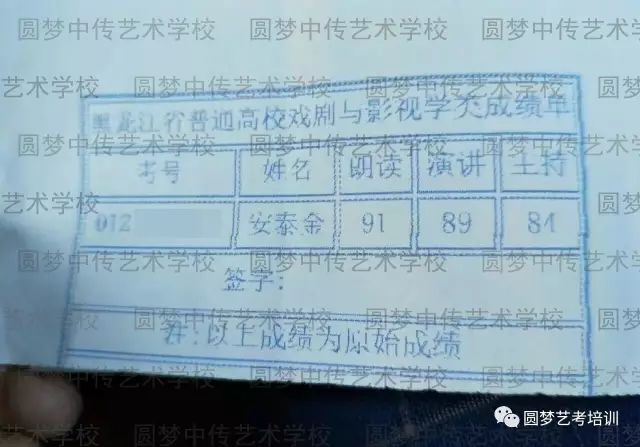 圆梦中传艺术学校 圆梦中传艺术学校 圆梦中传艺术学校
艺术学校 圆梦中传艺术学校 圆梦中传艺术学校 圆梦中
黑龙江省普通高校戏剧与影视学类成绩单
圆梦中传艺术学校 圆梦中传艺术学校 圆梦中传艺术学校
考号 姓名 朗读 演讲 主持
艺术学校 圆梦中传艺术学校 圆梦中传艺术学校 圆梦中
012 安泰金 91 89 84
圆梦中传艺术学校 圆梦中传艺术学校 圆梦中传艺术学校
签字：
艺术学校 圆梦中传艺术学校 圆梦中传艺术学校 圆梦中
注：以上成绩为原始成绩
圆梦中传艺术学校 圆梦中传艺术学校 圆梦中传艺术学校
圆梦艺考培训
艺术学校 圆梦中传艺术学校 圆梦中传艺术学校 圆梦中